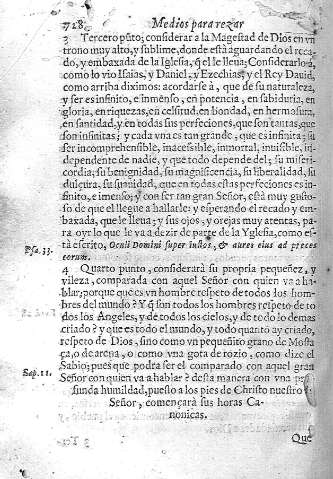 728. Medios para rezar
3 Tercero pũto, considerar a la Magestad de Dios en vn
trono muy alto, y sublime, donde està aguardando el reca-
do, y embaxada de la Iglesia, q̃ el le lleua; Considerarloà,
como lo vio Isaias, y Daniel, y Ezechias, y el Rey Dauid,
como arriba diximos: acordarseà, que de su naturaleza,
y ser es infinito, e inmenso, en potencia, en sabiduria, en
gloria, en riquezas, en celsitud, en bondad, en hermosura,
en santidad, y en todas sus perfecciones, que son tantas, que
son infinitas; y cada vna es tan grande, que es infinita; su
ser incomprehensible, inacessible, inmortal, inuisible, in-
dependente de nadie, y que todo depende del; su miseri-
cordia, su benignidad, su magnificencia, su liberalidad, su
dulçura, su suauidad, que en todas estas perfecciones es in-
finito, e imenso; y con ser tan gran Señor, està muy gusto-
so de que el llegue a hallarle: y esperando el recado, y em-
baxada, que le lleua; y sus ojos, y orejas muy atentas, pa-
ra oyr lo que le va a dezir de parte de la Yglesia, como es-
Psa. 33. tà escrito, Oculi Domini super Iustos, & aures eius ad preces
eorum.
4 Quarto punto, considerarà su propria pequeñez, y
vileza, comparada con aquel Señor con quien va a ha-
blar; porque que es vn hombre respeto de todos los hom-
bres del mundo? Y q̃ son todos los hombres respeto de to
dos los Angeles, y de todos los cielos, y de todo lo demas
criado? y que es todo el mundo, y todo quanto ay criado,
respeto de Dios, sino como vn pequeñito grano de Mosta
ça, o de arena, o como vna gota de rozio, como dize el
Sap. 11. Sabio; pues que podra ser el comparado con aquel gran
Señor con quien va a hablar? desta manera con vna pro
funda humildad, puesto a los pies de Christo nuestro
Señor, començarà sus horas Ca-
nonicas.
Que